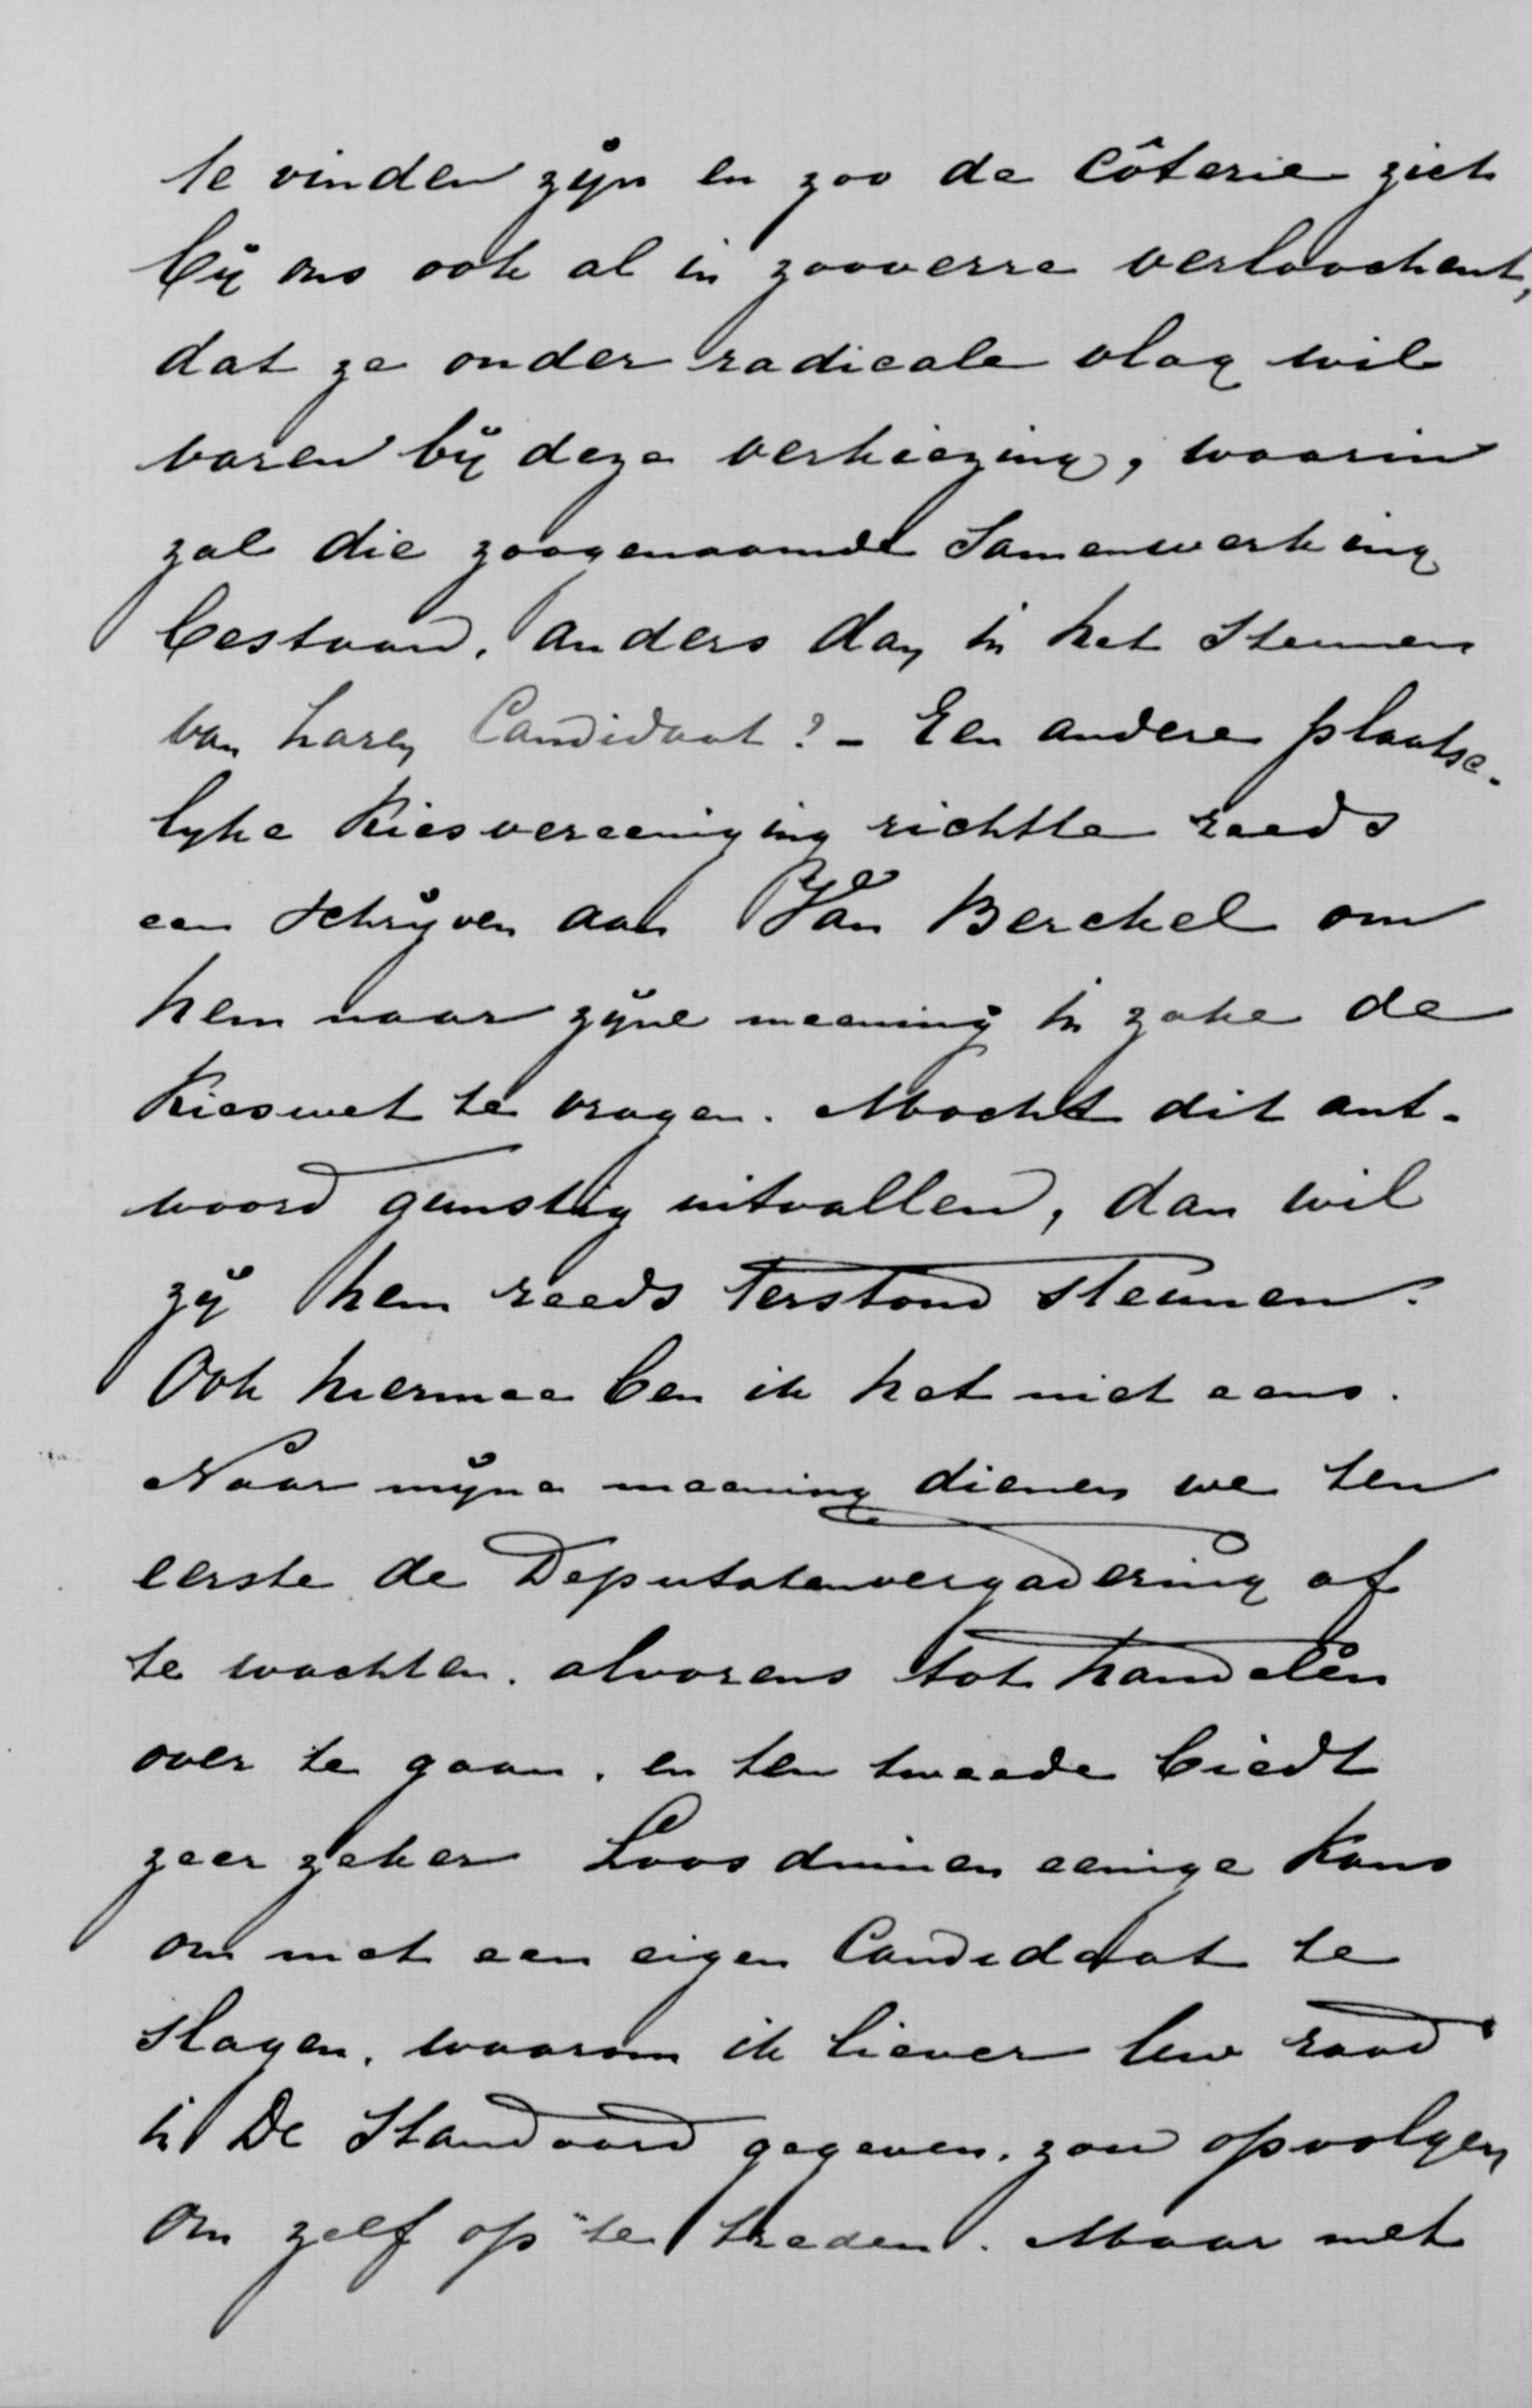 te vinden zijn en zoo de Côterie zich
bij ons ook al in zooverre verloochent,
dat ze onder radicale vlag wil
varen bij deze verkiezing, waarin
zal die zoogenaamde Samenwerking
bestaan, anders dan in het Steunen
van haren Candidaat? - Een andere plaatse-
lijke Kiesvereeniging richtte reeds
een schrijven aan Van Berckel om
hem naar zijne meening in zake de
Kieswet te vragen. Mocht dit ant-
woord gunstig uitvallen, dan wil
zij hem reeds terstond steunen.
Ook hiermee ben ik het niet eens.
Naar mijne meening dienen we ten
eerste de Deputatenvergadering af
te wachten, alvorens tot handelen
over te gaan, en ten tweede biedt
zeer zeker Loosduinen eenige kans
om met een eigen Candidaat te
slagen, waarom ik liever Uw raad
in De Standaard gegeven, zou opvolgen
om zelf op te treden. Maar met